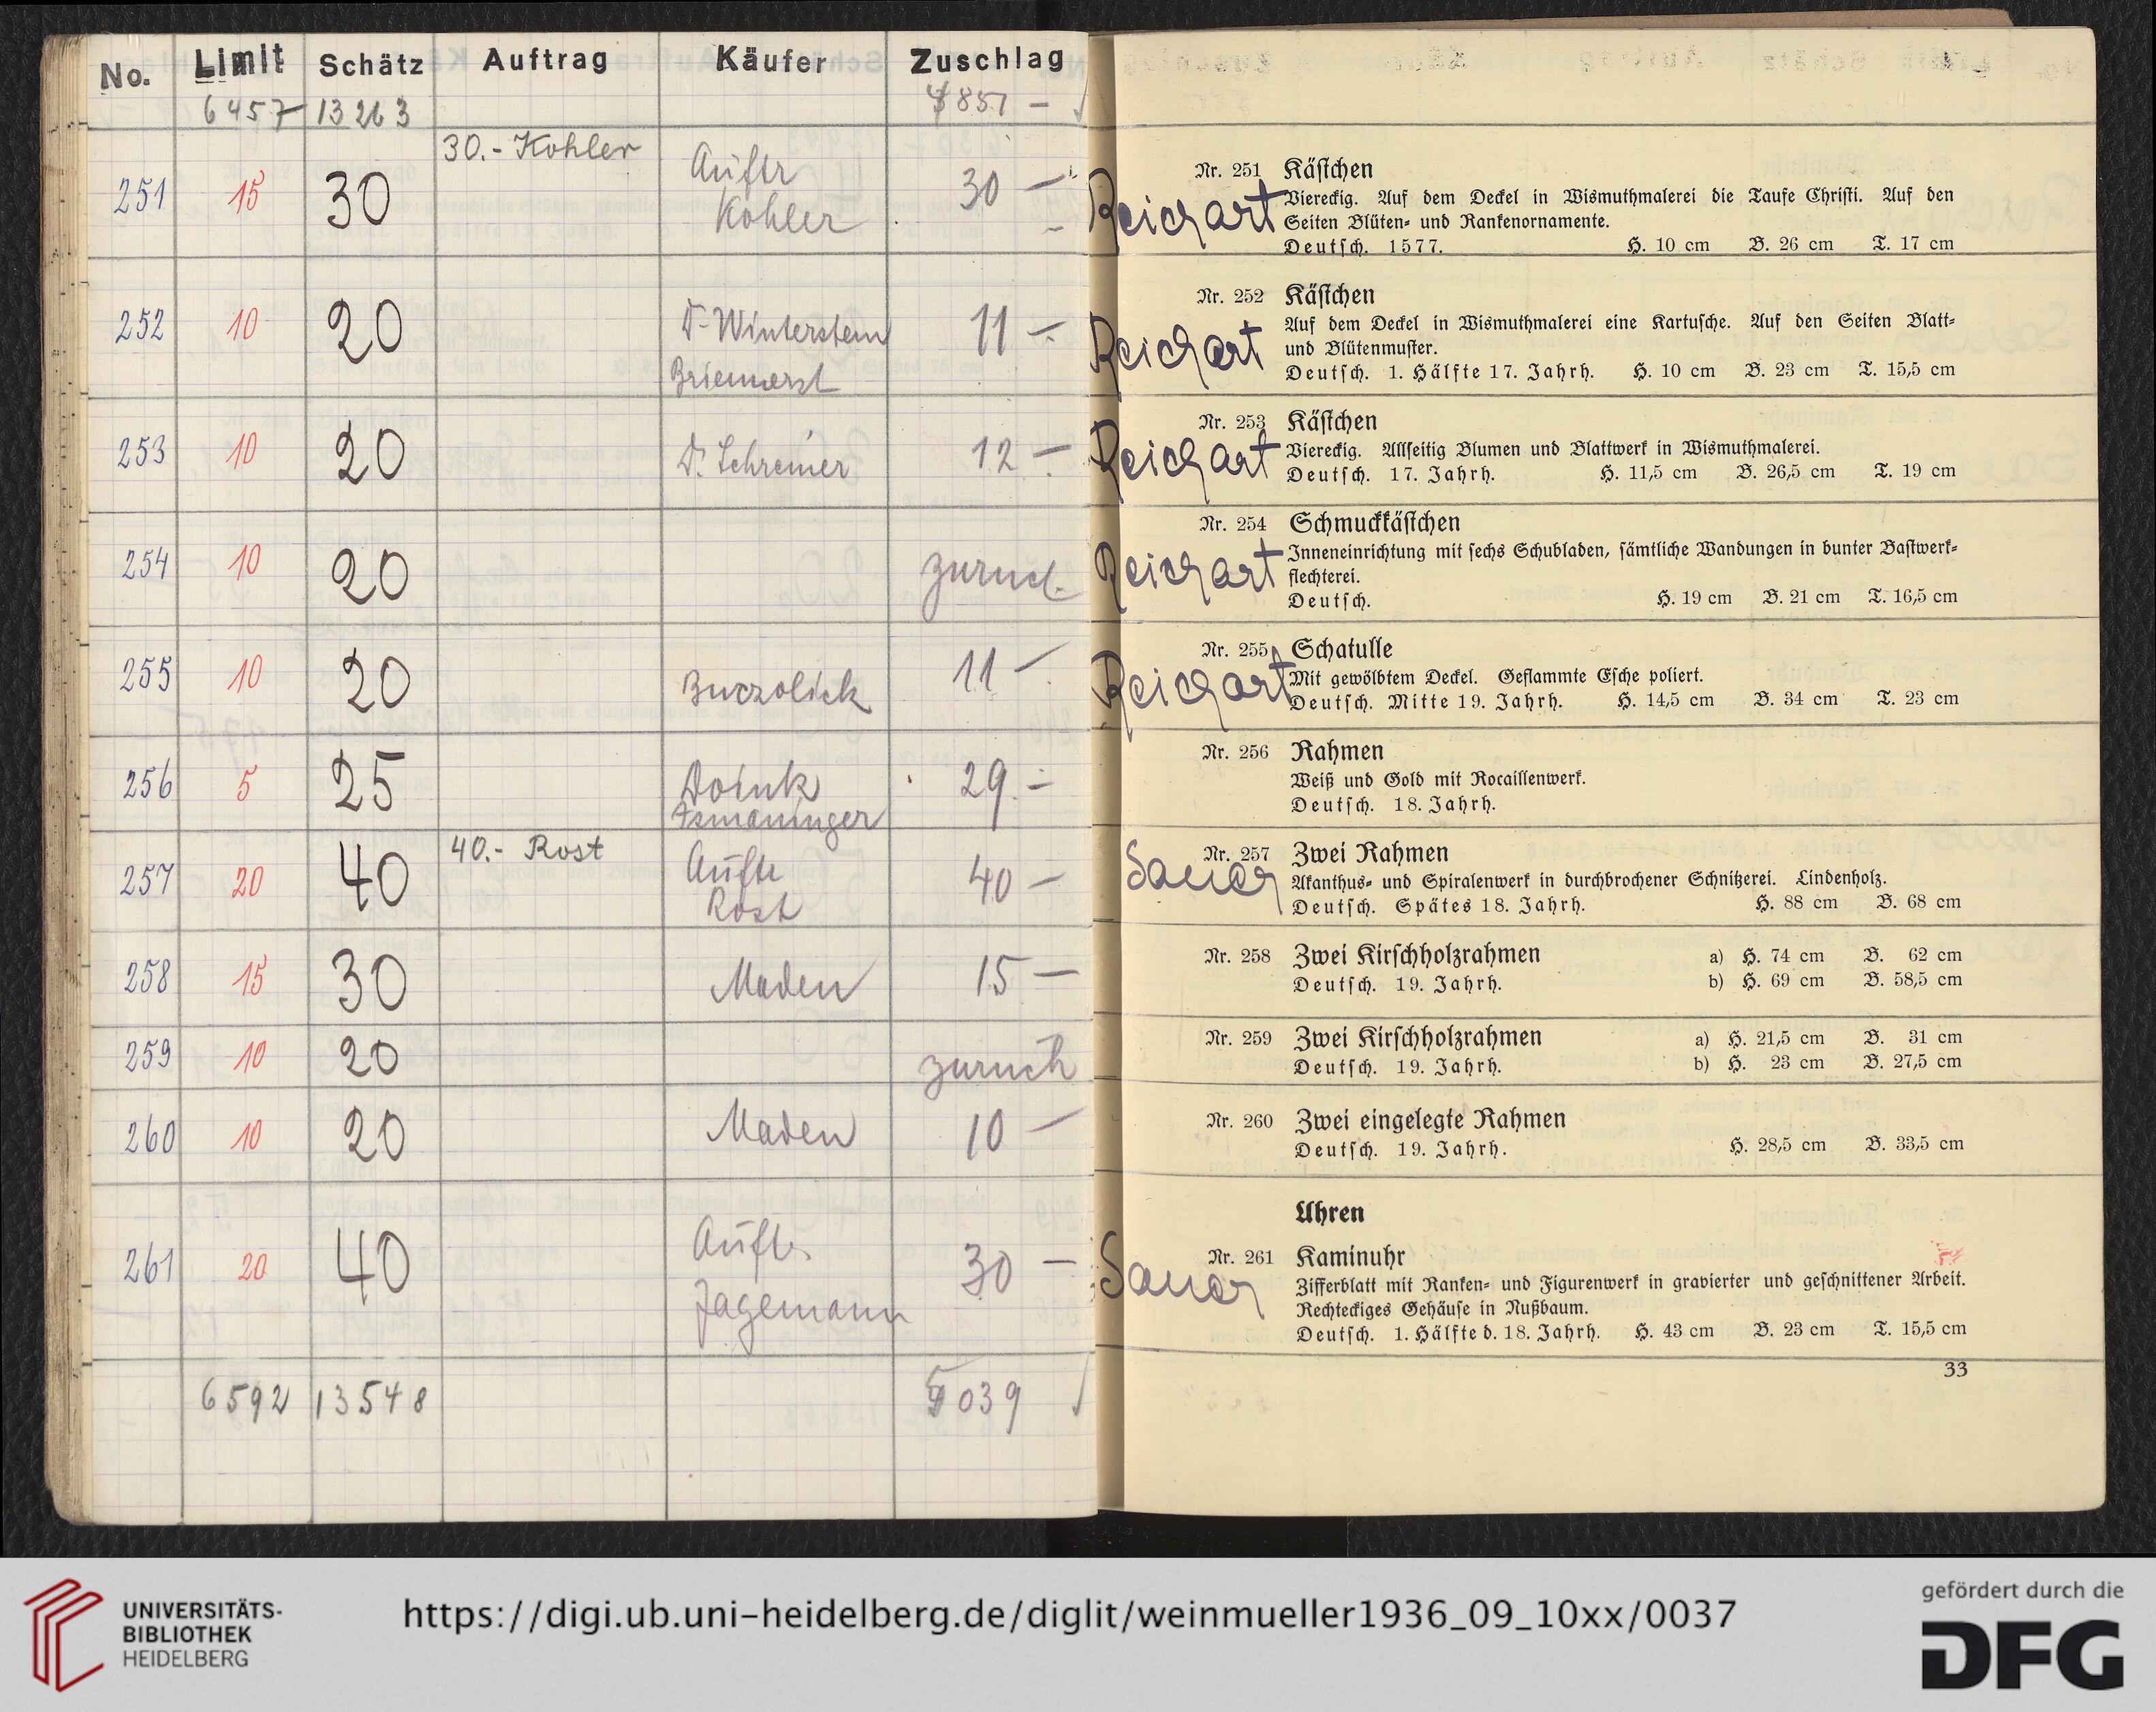 No. Limit Schätz Auftrag Käufer Zuschlag
6457 13263 4851 —
30.- Kohler
251 15 30 Auftr Kohler 30 —
252 10 20 Dr Winterstein 11 —
253 10 20 Dr. Schreiner 12 —
254 10 20 zurück
255 10 20 11 —
256 5 25 29.—
40.- Rost
257 20 40 Auftr Rost 40 —
258 15 30 Maden 15 —
259 10 20 zurück
260 10 20 Maden 10 —
261 20 40 Auftr. Jagemann 30 —
6592 13548 5039
Nr. 251 Käſtchen
Reichart
Viereckig. Auf dem Deckel in Wismuthmalerei die Taufe Chriſti. Auf den
Seiten Blüten- und Rankenornamente.
Deutſch. 1577. H. 10 cm B. 26 cm T. 17 cm
Nr. 252 Käſtchen
Reichart
Auf dem Deckel in Wismuthmalerei eine Kartuſche. Auf den Seiten Blatt-
und Blütenmuſter.
Deutſch. 1. Hälfte 17. Jahrh. H. 10 cm B. 23 cm T. 15,5 cm
Nr. 253 Käſtchen
Reichart
Viereckig. Allſeitig Blumen und Blattwerk in Wismuthmalerei.
Deutſch. 17. Jahrh. H. 11,5 cm B. 26,5 cm T. 19 cm
Nr. 254 Schmuckkäſtchen
Reichart
Inneneinrichtung mit ſechs Schubladen, ſämtliche Wandungen in bunter Baſtwerk-
flechterei.
Deutſch. H. 19 cm B. 21 cm T. 16,5 cm
Nr. 255 Schatulle
Reichart
Mit gewölbtem Deckel. Geflammte Eſche poliert.
Deutſch. Mitte 19. Jahrh. H. 14,5 cm B. 34 cm T. 23 cm
Nr. 256 Rahmen
Weiß und Gold mit Rocaillenwerk.
Deutſch. 18. Jahrh.
Nr. 257 Zwei Rahmen
Sauer
Akanthus- und Spiralenwerk in durchbrochener Schnitzerei. Lindenholz.
Deutſch. Spätes 18. Jahrh. H. 88 cm B. 68 cm
Nr. 258 Zwei Kirſchholzrahmen a) H. 74 cm B. 62 cm
Deutſch. 19. Jahrh. b) H. 69 cm B. 58,5 cm
Nr. 259 Zwei Kirſchholzrahmen a) H. 21,5 cm B. 31 cm
Deutſch. 19. Jahrh. b) H. 23 cm B. 27,5 cm
Nr. 260 Zwei eingelegte Rahmen
Deutſch. 19. Jahrh. H. 28,5 cm B. 33,5 cm
Uhren
Nr. 261 Kaminuhr
Sauer
Zifferblatt mit Ranken- und Figurenwerk in gravierter und geſchnittener Arbeit.
Rechteckiges Gehäuſe in Nußbaum.
Deutſch. 1. Hälfte d. 18. Jahrh. H. 43 cm B. 23 cm T. 15,5 cm
33
UNIVERSITÄTS-
BIBLIOTHEK
HEIDELBERG
https://digi.ub.uni-heidelberg.de/diglit/weinmueller1936_09_10xx/0037
gefördert durch die
DFG